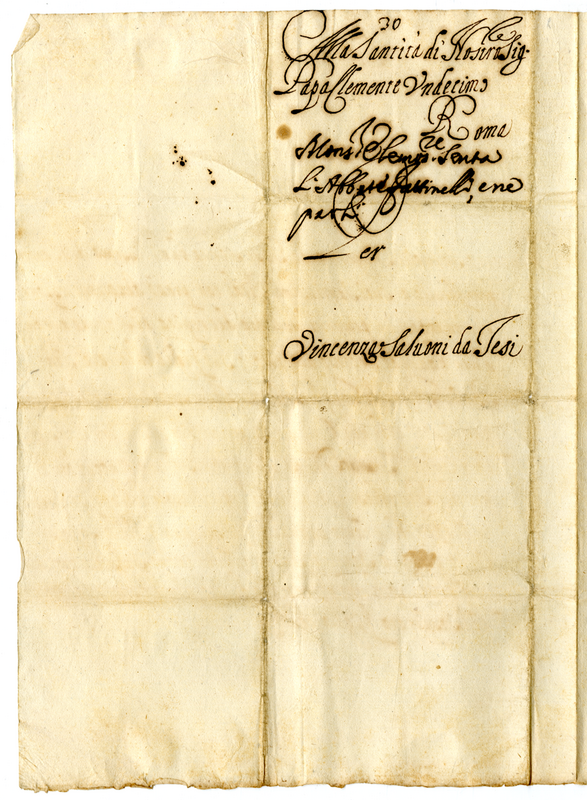 30
Alla Santità di Nostro Sig.re
Papa Clemente Undecimo
Roma
Mons.re senta
L'Abbate e ne
parli
Per
Vincenzo Saluoni da Jesi